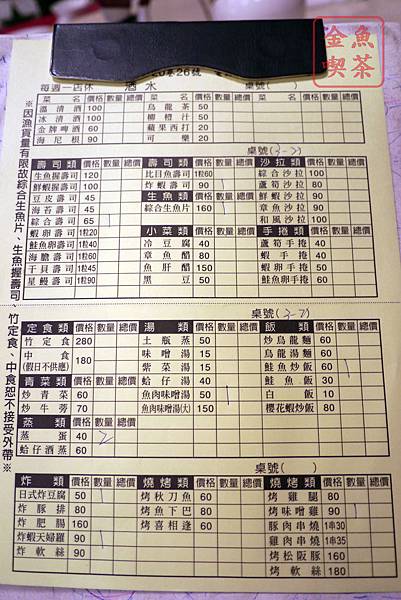 金魚
喫茶
巷26號
每週一店休 酒水 桌號( )
菜名 價格 數量 總價 菜名 價格 數量 總價 菜名 價格 數量 總價
溫清酒 100 烏龍茶 50
冰清酒 100 柳橙汁 50
金牌啤酒 60 蘋果西打 20
海尼根 90 可樂 20
桌號(3-7)
壽司類 價格 數量 總價 壽司類 價格 數量 總價 沙拉類 價格 數量 總價
生魚握壽司 120 比目魚壽司 1粒60 綜合沙拉 100
鮮蝦握壽司 100 炸蝦壽司 90 1 蘆筍沙拉 80
豆皮壽司 45 生魚類 價格 數量 總價 鮮蝦沙拉 90
海苔壽司 45 綜合生魚片 160 1 章魚沙拉 90
綜合壽司 65 1 和風沙拉 100
蝦卵壽司 1粒20 小菜類 價格 數量 總價 手捲類 價格 數量 總價
鮭魚卵壽司 1粒60 冷豆腐 40 蘆筍手捲 40
海膽壽司 1粒60 章魚醋 80 鮮蝦手捲 50
干貝壽司 1粒45 魚肝醋 180 蝦卵手捲 50
星鰻壽司 1粒90 黑豆 50 鮭魚卵手捲 60
桌號(3-7)
定食類 價格 數量 總價 湯類 價格 數量 總價 飯類 價格 數量 總價
竹定食 280 土瓶蒸 50 炒烏龍麵 60
中食 (假日不供應) 180 味噌湯 15 烏龍湯麵 60
紫菜湯 15 鮭魚炒飯 60 1
青菜類 價格 數量 總價 蛤仔湯 40 鮭魚飯 30
炒青菜 60 魚肉味噌湯 50 1 白飯 10
炒牛蒡 70 魚肉味噌湯(大) 150 櫻花蝦炒飯 80
蒸類 價格 數量 總價
蒸蛋 40 2
蛤仔酒蒸 60
桌號( )
炸類 價格 數量 總價 燒烤類 價格 數量 總價 燒烤類 價格 數量 總價
日式炸豆腐 50 1 烤秋刀魚 60 烤雞腿 80
炸豚排 80 烤魚下巴 80 烤味噌雞 90 1
炸肥腸 160 烤喜相逢 60 豚肉串燒 1串30
炸蝦天婦羅 90 1 雞肉串燒 1串35
炸軟絲 90 烤松阪豚 160
烤軟絲 180
※因漁貨量有限故綜合生魚片、生魚握壽司、竹定食、中食恕不接受外帶※